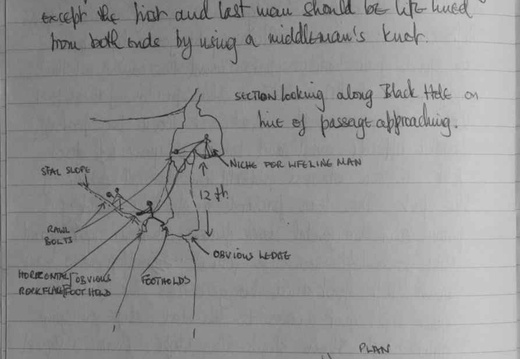 except the first and last man should be life lined
from both ends by using a middleman's knot.
SECTION looking along Black Hole on
line of passage approaching.
NICHE FOR LIFELINE MAN
STAL SLOPE
12 ft
RAWL
BOLTS
OBVIOUS LEDGE
HORIZONTAL OBVIOUS FOOTHOLDS
ROCK FLAKE FOOT HOLD
PLAN